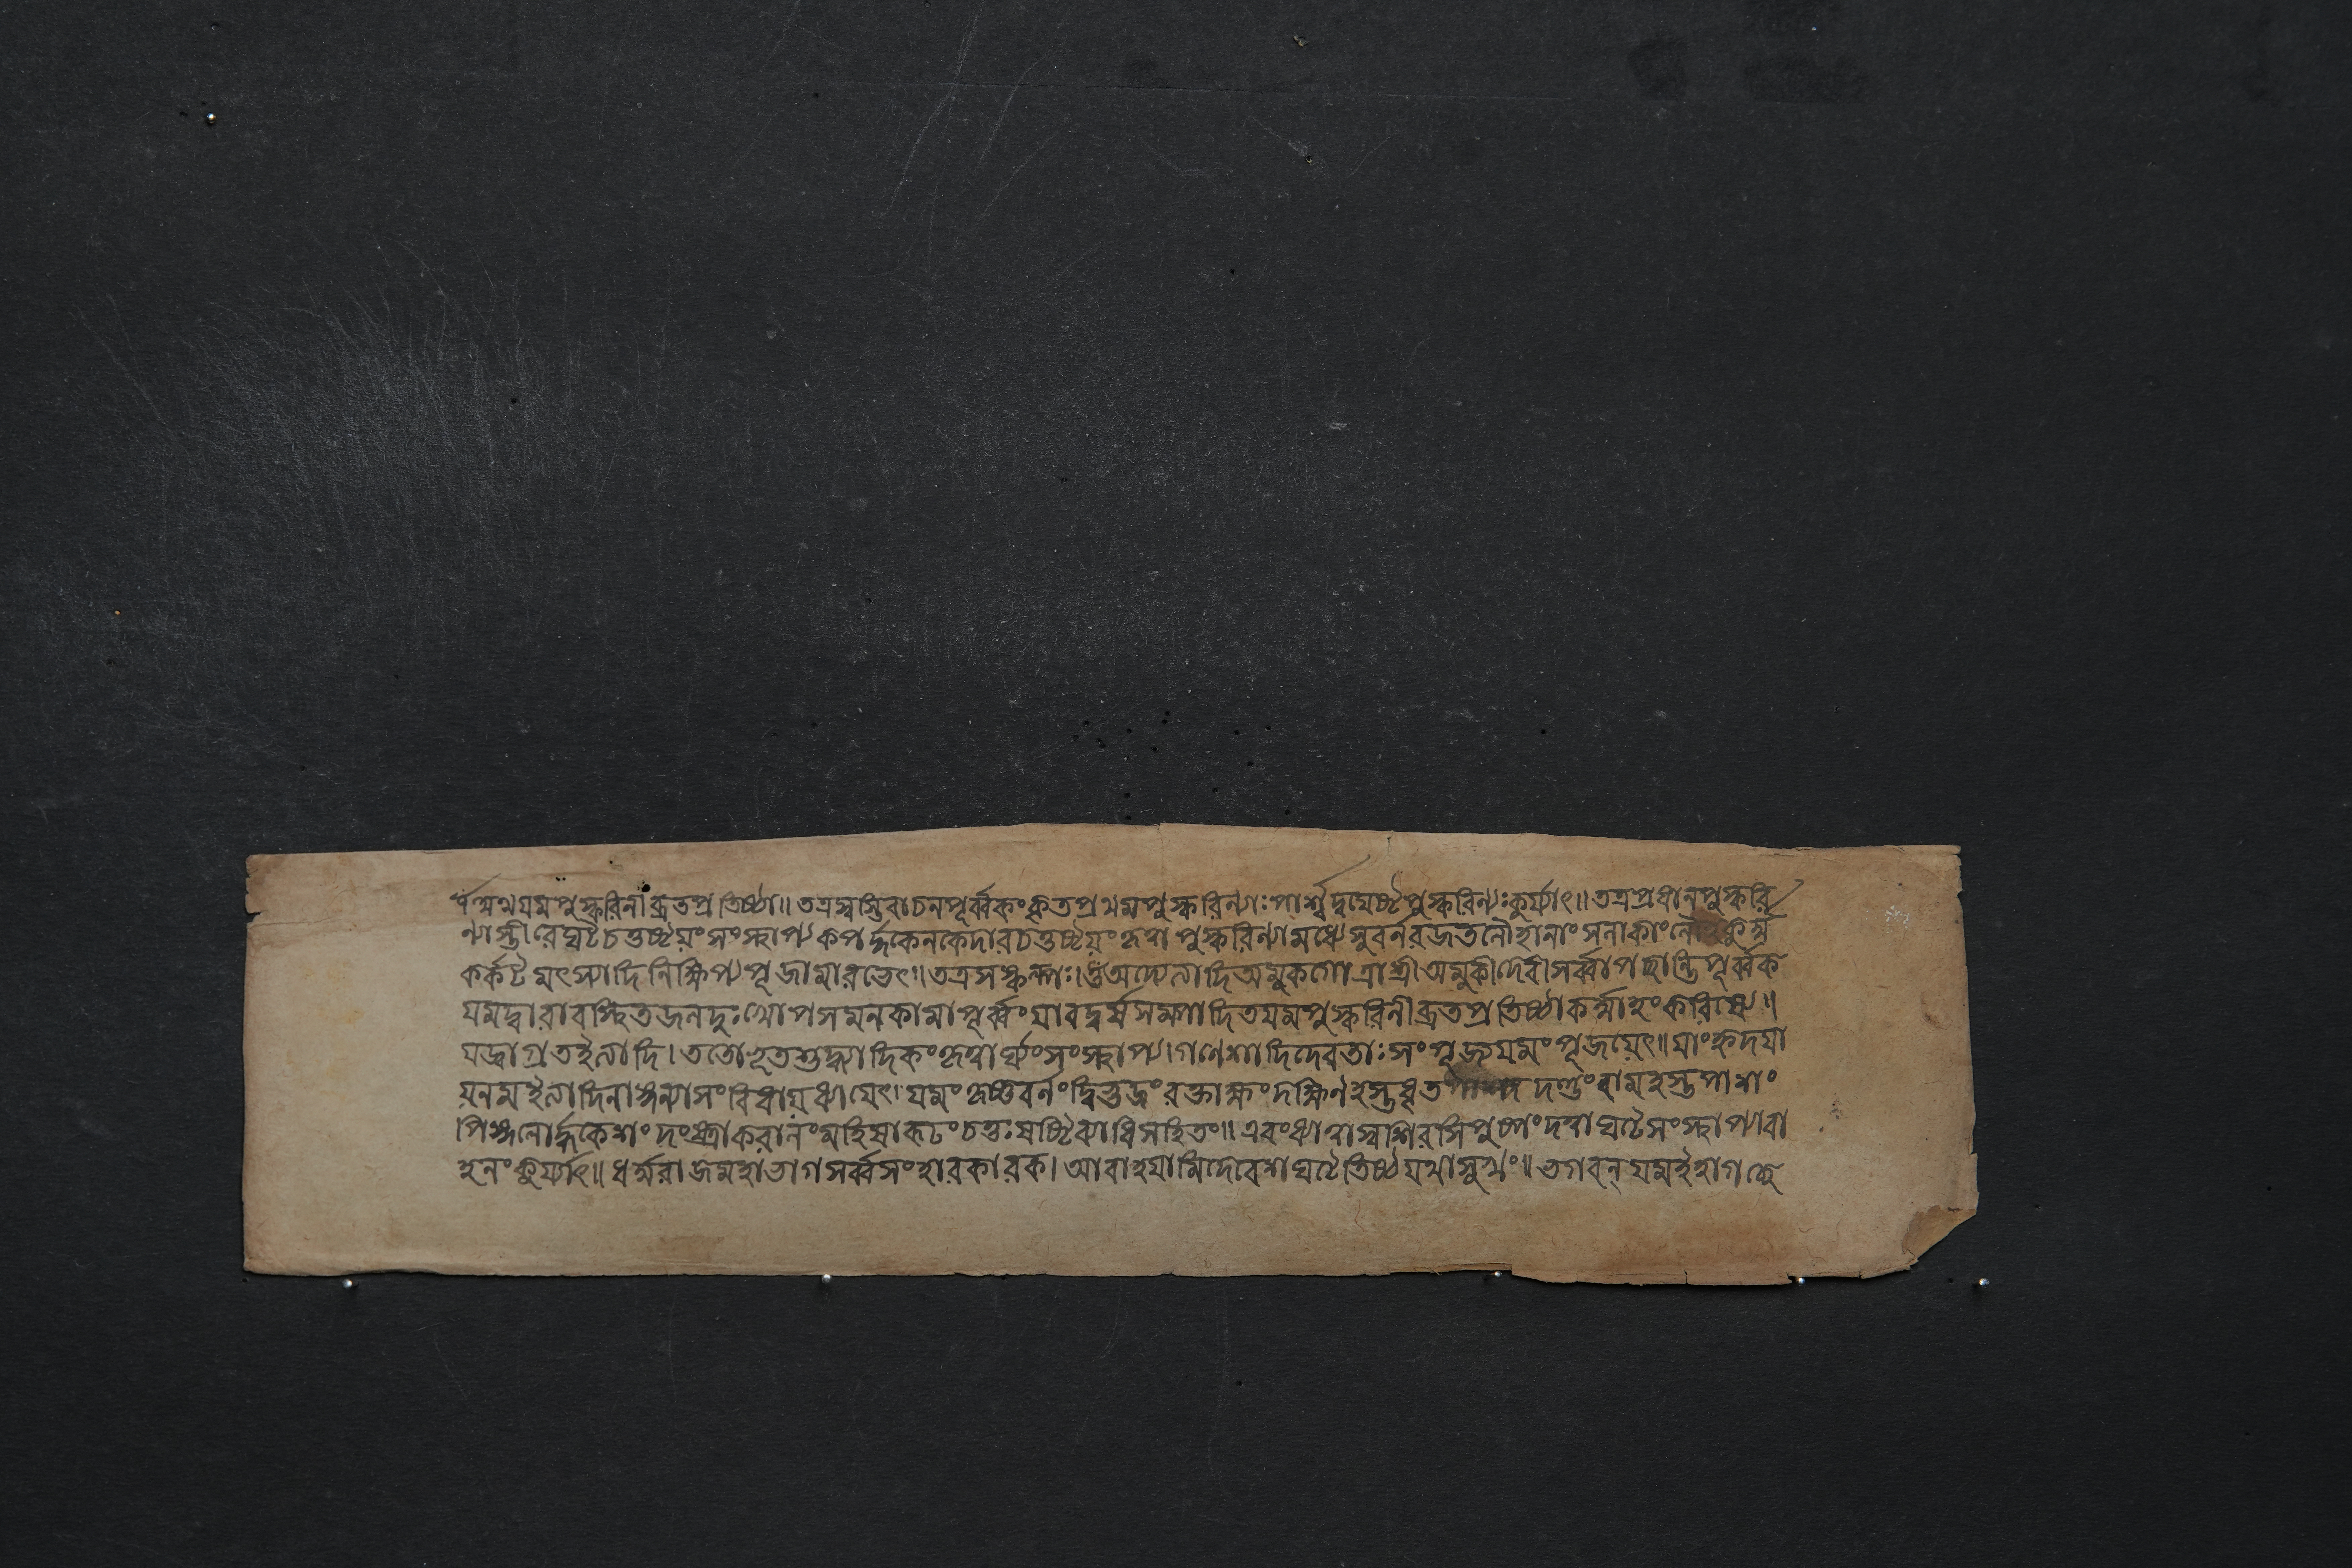 অথযমপুস্করিনীব্রতপ্রতিষ্ঠা॥ তত্রস্বস্তিবাচনপূর্ব্বকং কৃতপ্রথমপুস্করিন্যাঃ পার্শ্বদ্বয়েষ্টৈপুস্করিন্যঃকুর্য্যাৎ॥ তত্রপ্রধানপুস্করি
ন্যাস্তীরেঘটৈচত্তুষ্টয়ং সংস্থাপ্য কপর্দ্দকেনকেদারচত্তুষ্টয়ং কৃত্বা পুস্করিন্যামধ্যে সুবর্নরজতলৌহানাং সলাকাং
কর্কটৈমৎস্যাদিনিক্ষিপ্য পূজামারভেৎ॥ তত্রসঙ্কল্পঃ। ওঁঅদ্যেত্যাদিঅমুকগোত্রাশ্রীঅমুকীদেবীসর্ব্বাপচ্ছান্তিপূর্ব্বক
যমদ্বারাবস্থিতজনদুঃখোপসমনকামাপূর্ব্বংযাবদ্বর্ষসম্পাদিতযমপুস্করিনীব্রতপ্রতিষ্ঠাকর্ম্মাহং করিষ্যে॥
যজ্জাগ্রতইত্যাদি। ততোভূতশুদ্ধ্যাদিকংকৃত্বার্ঘ্যংসংস্থাপ্য। গণেশাদিদেবতাঃ সংপূজ্যযমং পূজয়েৎ॥ যাংহৃদয়া
য়নমইত্যাদিনাঙ্গন্যাসংবিধায়ধ্যায়েৎ। যমংকৃষ্ণবর্নংদ্বিভুজং রক্তাক্ষংদক্ষিণহস্তধৃত দণ্ডংবামহস্তপাশাং
পিঙ্গলোর্দ্ধকেশং দংষ্ট্রাকরালংমহিষারূঢং চত্তুঃষষ্টিব্যাধিসহিতং॥ এবংধ্যাত্বাস্বশিরসিপুষ্পং দত্বাঘটৈসংস্থাপ্যাবা
হনং কুর্য্যাৎ॥ ধর্ম্মরাজমহাভাগসর্ব্বসংহারকারক। আবাহয়ামিদেবেশঘটৈতিষ্ঠযথাসুখং॥ ভগবন্ যমইহাগচ্ছে